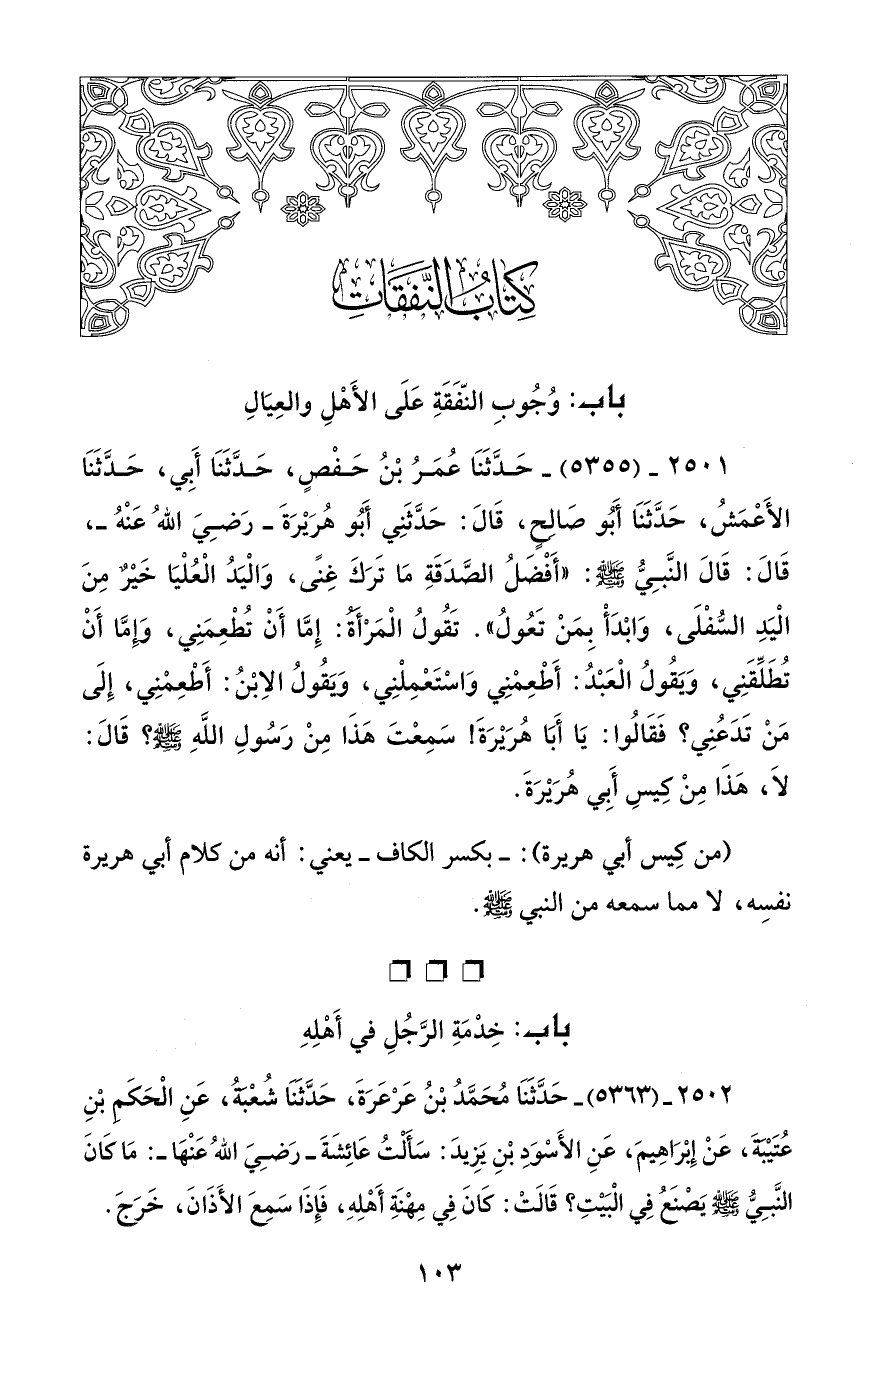 كِتَابُ النَّفَقَاتِ
باب: وُجُوبِ النَّفَقَةِ عَلَى الأَهْلِ والعِيَالِ
٢٥٠١ ـ (٥٣٥٥) ـ حَدَّثَنَا عُمَرُ بْنُ حَفْصٍ، حَدَّثَنَا أَبِي، حَدَّثَنَا
الأَعْمَشُ، حَدَّثَنَا أَبُو صَالِحٍ، قَالَ: حَدَّثَنِي أَبُو هُرَيْرَةَ ـ رَضِيَ اللهُ عَنْهُ ـ،
قَالَ: قَالَ النَّبِيُّ ﷺ: «أَفْضَلُ الصَّدَقَةِ مَا تَرَكَ غِنًى، وَالْيَدُ الْعُلْيَا خَيْرٌ مِنَ
الْيَدِ السُّفْلَى، وَابْدَأْ بِمَنْ تَعُولُ». تَقُولُ الْمَرْأَةُ: إِمَّا أَنْ تُطْعِمَنِي، وَإِمَّا أَنْ
تُطَلِّقَنِي، وَيَقُولُ الْعَبْدُ: أَطْعِمْنِي وَاسْتَعْمِلْنِي، وَيَقُولُ الاِبْنُ: أَطْعِمْنِي، إِلَى
مَنْ تَدَعُنِي؟ فَقَالُوا: يَا أَبَا هُرَيْرَةَ! سَمِعْتَ هَذَا مِنْ رَسُولِ اللَّهِ ﷺ؟ قَالَ:
لاَ، هَذَا مِنْ كِيسِ أَبِي هُرَيْرَةَ.
(من كِيس أبي هريرة): ـ بكسر الكاف ـ يعني: أنه من كلام أبي هريرة
نفسِه، لا مما سمعه من النبي ﷺ.
❒ ❒ ❒
باب: خِدْمَةِ الرَّجُلِ في أَهْلِهِ
٢٥٠٢ ـ (٥٣٦٣) ـ حَدَّثَنَا مُحَمَّدُ بْنُ عَرْعَرَةَ، حَدَّثَنَا شُعْبَةُ، عَنِ الْحَكَمِ بْنِ
عُتَيْبَةَ، عَنْ إِبْرَاهِيمَ، عَنِ الأَسْوَدِ بْنِ يَزِيدَ: سَأَلْتُ عَائِشَةَ ـ رَضِيَ اللهُ عَنْهَا ـ: مَا كَانَ
النَّبِيُّ ﷺ يَصْنَعُ فِي الْبَيْتِ؟ قَالَتْ: كَانَ فِي مِهْنَةِ أَهْلِهِ، فَإِذَا سَمِعَ الأَذَانَ، خَرَجَ.
١٠٣